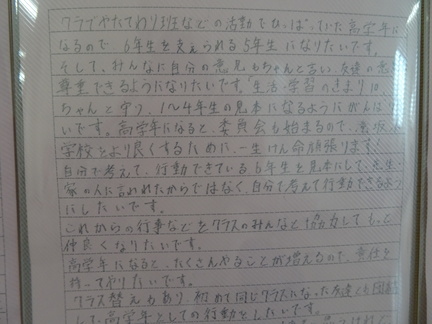 クラブやたてわり班などの活動でひっぱっていた高学年に
なるので、6年生を支えられる5年生になりたいです。
そして、みんなに自分の意見もちゃんと言い、友達の意
尊重できるようになりたいです。「生活・学習のきまり」
ちゃんと守り、1〜4年生の見本になるようにがんば
いです。高学年になると、委員会も始まるので、
学校をより良くするために、一生けん命頑張ります!
自分で考えて、行動できている6年生を見本にして、先生
家の人に言われたからではなく、自分で考えて行動できるよう
にしたいです。
これからの行事などをクラスのみんなと協力してもっと
仲良くなりたいです。
高学年になると、たくさんやることが増えるので、責任を
持ってやりたいです。
クラス替えもあり、初めて同じクラスになった友達とも
した高学年としての行動をしたいです。